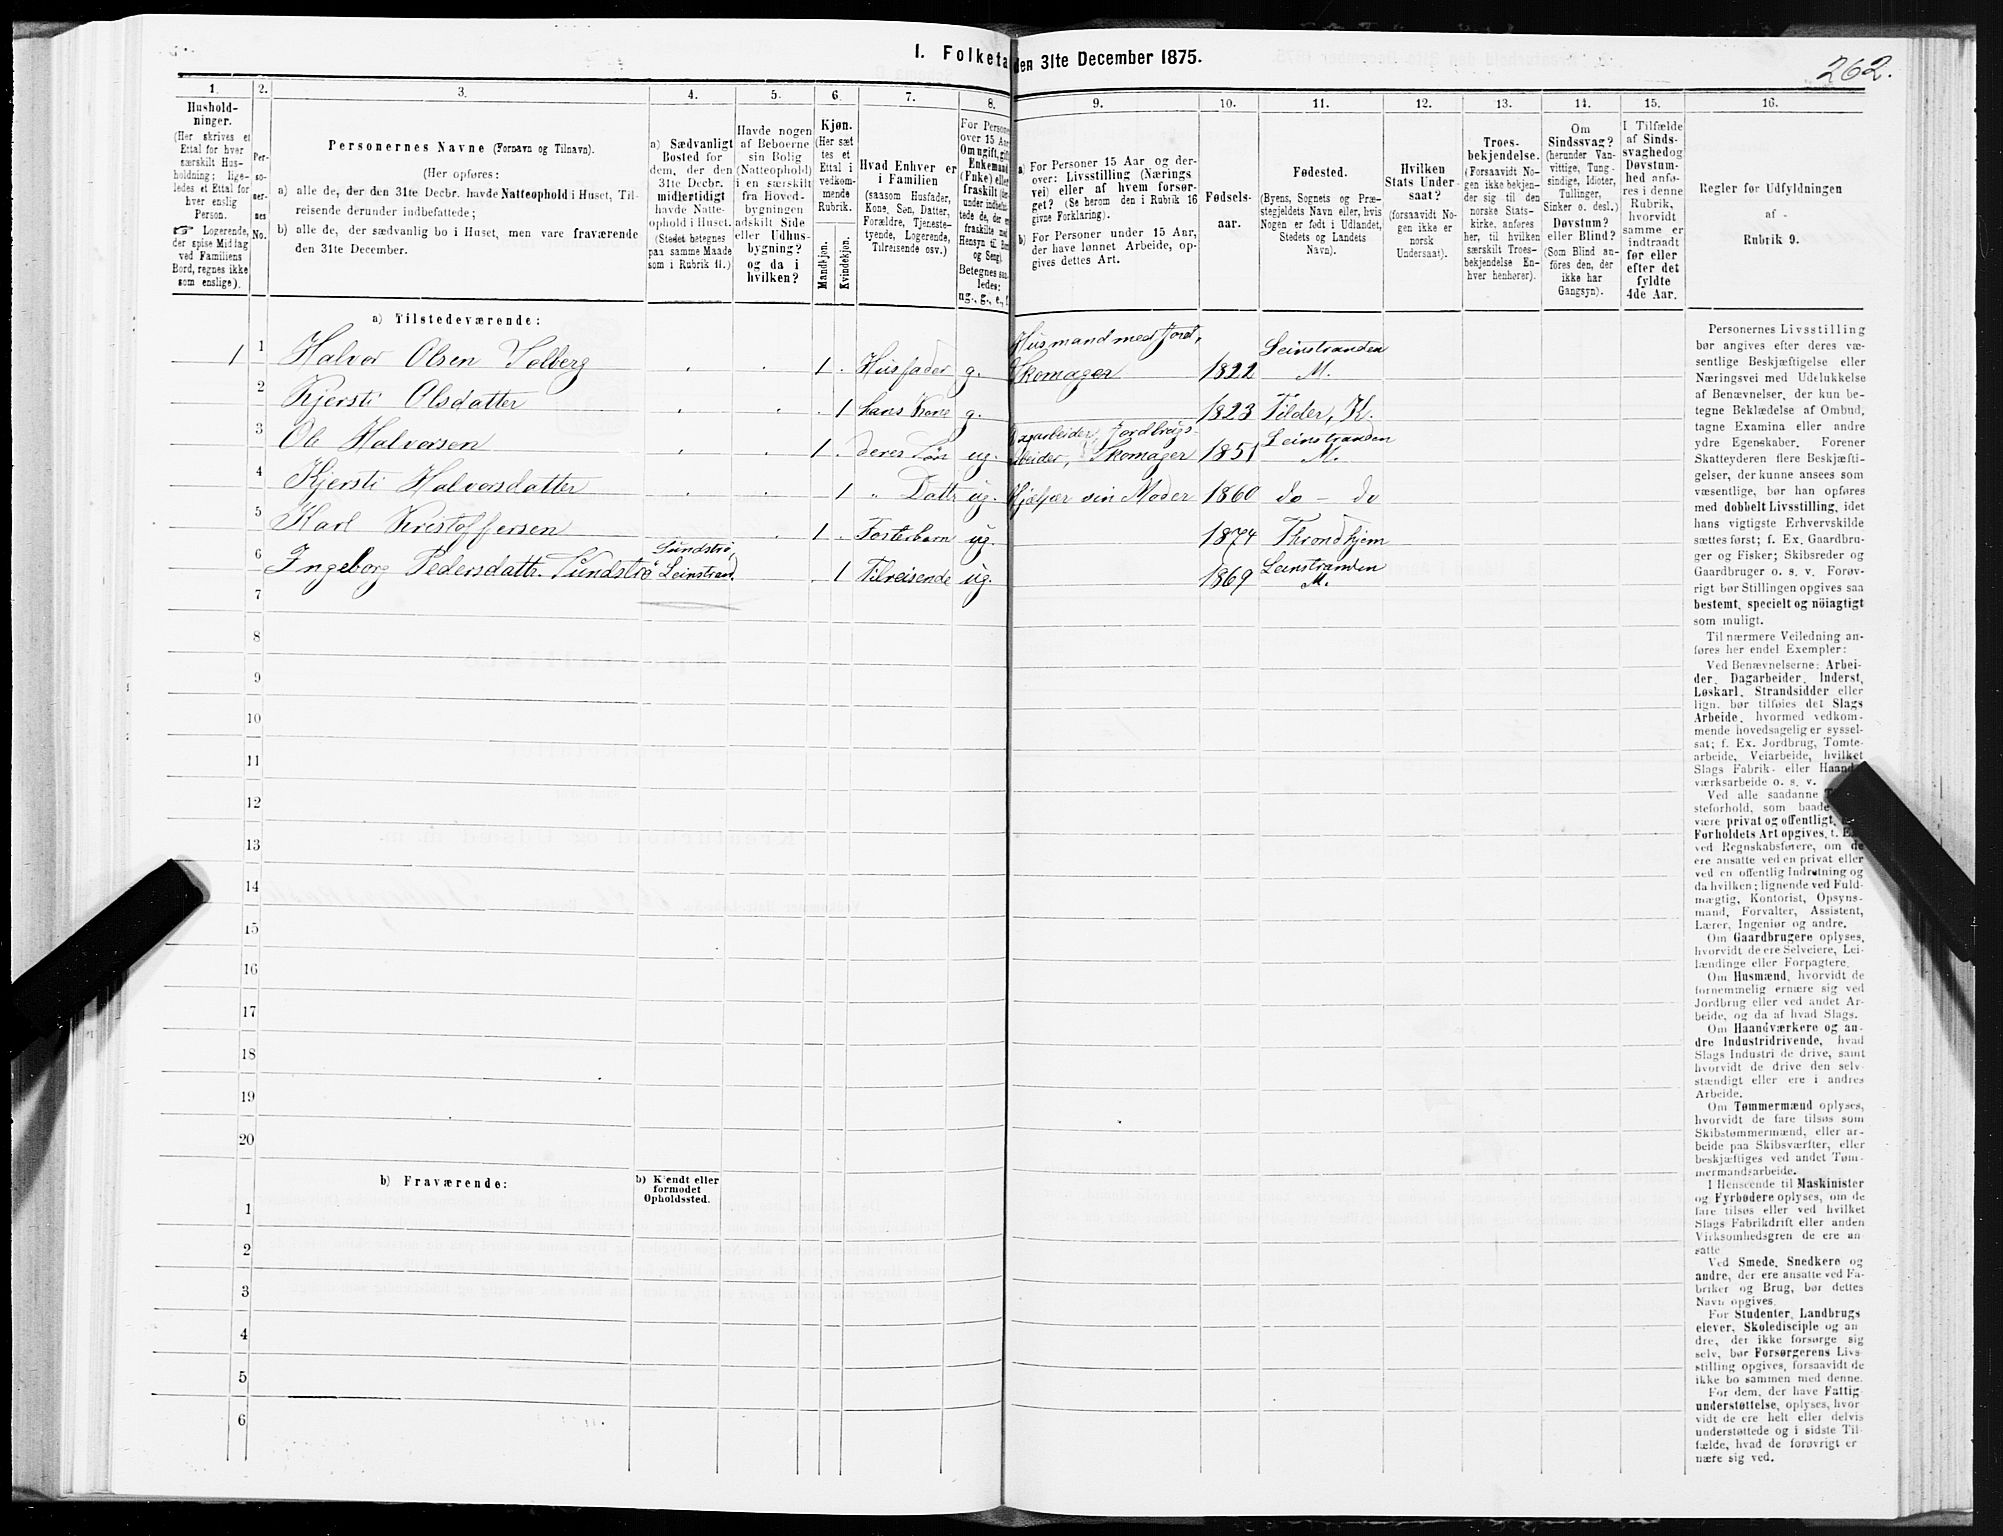 I. Folketa den 31te December 1875.
262.
1. 2. 3. 4. 5. 6. 7. 8. 9. 10. 11. 12. 13. 14. 15. 16.
Hushold-
ninger.
(Her skrives et
Ettal for hver
særskilt Hus-
holdning; lige-
ledes et Ettal for
hver enslig
Person.
Logerende,
der spise Middag
ved Familiens
Bord, regnes ikke
som enslige).
Per-
so-
ner-
nes
No.
Personernes Navne (Fornavn og Tilnavn).
(Her opføres:
a) alle de, der den 31te Decbr. havde Natteophold i Huset, Til-
reisende derunder indbefattede;
b) alle de, der sædvanlig bo i Huset, men vare fraværende
den 31te December.
a) Sædvanligt
Bosted for
dem, der den
31te Decbr.
midlertidigt
havde Natte-
ophold i Huset.
(Stedet betegnes
paa samme Maade
som i Rubrik 11.)
Havde nogen
af Beboerne
sin Bolig
(Natteophold)
i en særskilt
fra Hoved-
bygningen
adskilt Side
eller Udhus-
bygning?
og da i
hvilken?
Kjøn.
(Her sæt
tes et
Ettal i
vedkom-
mende
Rubrik.
Mandkjøn.
Kvindekjøn.
Hvad Enhver er
i Familien
(saasom Husfader,
Kone, Søn, Datter,
Forældre, Tjeneste-
tyende, Logerende,
Tilreisende osv.)
For Persone
over 15 Aar
Om ugift, gift
Enkemand
(Enke) eller
fraskilt (her
under indbefat
tede de, der
fraskilte med
Hensyn til Bor
og Seng).
Betegnes saa
ledes:
ug., g., e., f.
a) For Personer 15 Aar og der-
over: Livsstilling (Nærings
vei) eller af hvem forsør-
get? (Se herom den i Rubrik 16
givne Forklaring).
b) For Personer under 15 Aar,
der have lønnet Arbeide, op-
gives dettes Art.
Fødsels-
aar.
Fødested.
(Byens, Sognets og Præ-
stegjeldets Navn eller, hvis
Nogen er født i Udlandet,
Stedets og Landets
Navn).
Hvilken
Stats Under-
saat?
(forsaavidt No-
gen ikke er
norsk
Undersaat).
Troes-
bekjendelse.
(Forsaavidt No-
gen ikke bekjen-
der sig til den
norske Stats-
kirke, anføres
her, til hvilken
særskilt Troes-
bekjendelse En-
hver henhører).
Om
Sindssvag?
(herunder Van-
vittige, Tung-
sindige, Idioter,
Tullinger,
Sinker o. desl.)
Døvstum?
eller Blind?
(Som Blind an-
føres den, der
ikke har
Gangsyn).
I Tilfælde
af Sinds-
svaghed og
Døvstum-
hed anfø-
res i denne
Rubrik,
hvorvidt
samme er
indtraadt
før eller
efter det
fyldte
4de Aar.
Regler for Udfyldningen
af
Rubrik 9.
a) Tilstedeværende:
1 1 Halvor Olsen Solberg 1 Husfader g. Husmand med Jord, Skomager 1822 Leinstranden M.
2 Kjersti Olsdatter 1 hans Kone g. 1823 Tilder, K.
3 Ole Halvorsen 1 deres Søn ug. Dagarbeider, Jordbrugs-
arbeider, Skomager 1851 Leinstranden M.
4 Kjersti Halvorsdatter 1 " Dattr ug. Hjælper sin Moder 1860 do - do
5 Karl Kristoffersen 1 Fosterbarn ug. 1874 Throndhjem
6 Ingeborg Pedersdattr. Sundstrø Sundstrø, Leinstrand. 1 Tilreisende ug. 1869 Leinstranden M.
7
8
9
10
11
12
13
14
15
16
17
18
19
20
b) Fraværende:
b) Kjendt eller
formodet
Opholdssted.
1
2
3
4
5
6
Personernes Livsstilling
bør angives efter deres væ-
sentlige Beskjæftigelse eller
Næringsvei med Udelukkelse
af Benævnelser, der kun be-
tegne Beklædelse af Ombud,
tagne Examina eller andre
ydre Egenskaber. Forener
Skatteyderen flere Beskjæfti-
gelser, der kunne ansees som
væsentlige, bør han opføres
med dobbelt Livsstilling, idet
hans vigtigste Erhvervskilde
sættes først; f. Ex. Gaardbru-
ger og Fisker; Skibsreder og
Gaardbruger o. s. v. Forøv-
rigt bør Stillingen opgives saa
bestemt, specielt og nöiagtigt
som muligt.
Til nærmere Veiledning an-
føres her endel Exempler:
Ved Benævnelserne: Arbei-
der, Dagarbeider, Inderst,
Løskarl, Strandsidder eller
lign. bør tilføies det Slags
Arbeide, hvormed vedkom-
mende hovedsagelig er syssel-
sat; f. Ex. Jordbrug, Tomte-
arbeide, Veiarbeide, hvilket
Slags Fabrik- eller Haand-
værksarbeide o. s. v.
Ved alle saadanne
steforhold, som baade
være privat og offentligt,
Forholdets Art opgives, t. Ex.
ved Regnskabsførere, om de
ere ansatte ved en privat eller
ved en offentlig Indretning og
da hvilken; lignende ved Fuld-
mægtig, Kontorist, Opsyns-
mand, Forvalter, Assistent,
Lærer, Ingeniør og andre.
Om Gaardbrugere oplyses,
hvorvidt de ere Selveiere, Lei-
lændinge eller Forpagtere.
Om Husmænd, hvorvidt de
fornemmelig ernære sig ved
Jordbrug eller ved andet Ar-
beide, og da af hvad Slags.
Om Haandværkere og an-
dre Industridrivende, hvad
Slags Industri de drive, samt
hvorvidt de drive den selv-
stændigt eller ere i andres
Arbeide.
Om Tømmermænd oplyses,
hvorvidt de fare tilsøs som
Skibstømmermænd, eller ar-
beide paa Skibsværfter, eller
beskjæftiges ved andet Tøm-
mermandsarbeide.
I Henseende til Maskinister
og Fyrbødere oplyses, om de
fare tilsøs eller ved hvilket
Slags Fabrikdrift eller anden
Virksomhedsgren de ere an-
satte.
Ved Smede, Snedkere og
andre, der ere ansatte ved Fa-
briker og Brug, bør dettes
Navn opgives.
For Studenter, Landbrugs
elever, Skoledisciple og an
dre, der ikke forsørge sig
selv, bør Forsørgerens Livs-
stilling opgives, forsaavidt de
ikke bo sammen med denne.
For dem, der have Fattig-
understøttelse, oplyses, hvor
vidt de ere helt eller delvis
understøttede og i sidste Til-
fælde, hvad de forøvrigt er
nære sig ved.